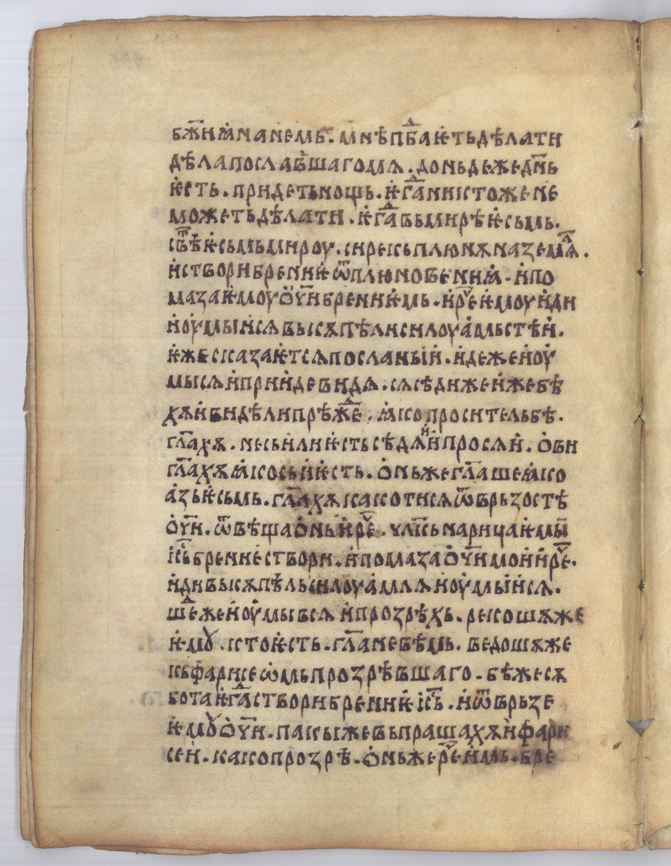 бж҃иꙗ на немь· мнѣ пб҃аѥть дѣлати
дѣла пославшаго мѧ· доньдеже дн҃ь
ѥсть· придеть нощь· ѥгда никтоже не
можеть дѣлати· ѥгда вь мирѣ ѥсьмь·
свѣ҃ ѥсьмь мироу· си рекь плюнѫ на землѧ·
и створи брениѥ ѿ плюновениꙗ· и по
маза ѥмоу ѻчи брениѥмь· и рч҃е ѥмоу иди
и оумыи сѧ вь кѫпѣли силоуамьстѣи·
ѥже сказаѥтсѧ посланыи· иде же и оу
мы сѧ и приде видѧ· сѫсѣди же иже бѣ
хѫ и видѣли прѣж҃е· ꙗко проситель бѣ·
гл҃ахѫ· не сь ли ѥсть сѣдѧи и просѧи· ѻви
гл҃ахѫ ꙗко сьи ѥсть· ѻнь же гл҃аше ꙗко
азь ѥсьмь· гл҃ахѫ како ти сѧ ѿврьзостѣ
ѻчи· ѿвѣща ѻнь и рч҃е· чл҃кь нарицаѥмы
іс҃ь брение створи· и помаза ѻчи мои и рч҃е·
иди вь кѫпѣль силоуамлѧ и оумыи сѧ·
шь҃же и оумывсѧ и прозрѣхь· рекошѫ же
ѥмꙋ· кто ѥсть· гл҃а не вѣмь· ведошѫ же
кь фарисеѡмь прозрѣвшаго· бѣ же сѫ
бота ѥгда створи брениѥ іс҃ь· и ѿврьзе
ѥмꙋ ѻчи· пакы же вьпрашахѫ и фари
сеи· како прозрѣ· ѻнь же рч҃е имь· бре